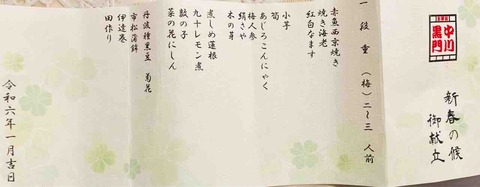 中川
黒門
新春の候
御献立
一段重(梅)二〜三人前
赤魚西京焼き
焼き海老
紅白なます
小芋
筍
あじろこんにゃく
梅人参
絹さや
木の芽
煮しめ蓮根
九十レモン煮
数の子
菜の花にしん
丹波種黒豆 菊花
市松蒲鉾
伊達巻
田作り
令和六年一月吉日